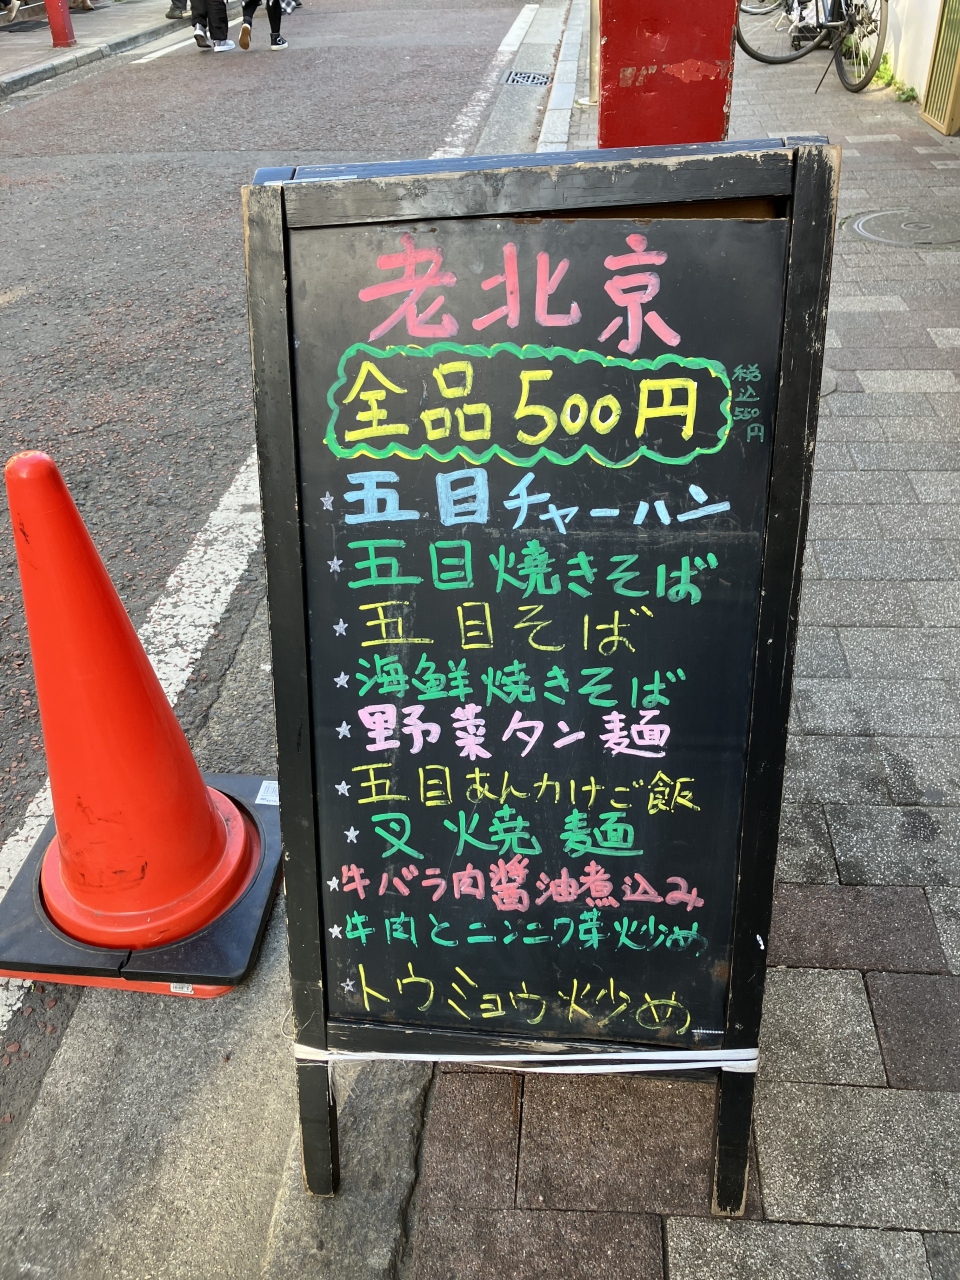 老北京
全品500円
税込550円
★五目チャーハン
★五目焼きそば
★五目そば
★海鮮焼きそば
★野菜タン麺
★五目あんかけご飯
★叉焼麺
★牛バラ肉醤油煮込み
★牛肉とニンニク菜炒め
★トウミョウ炒め